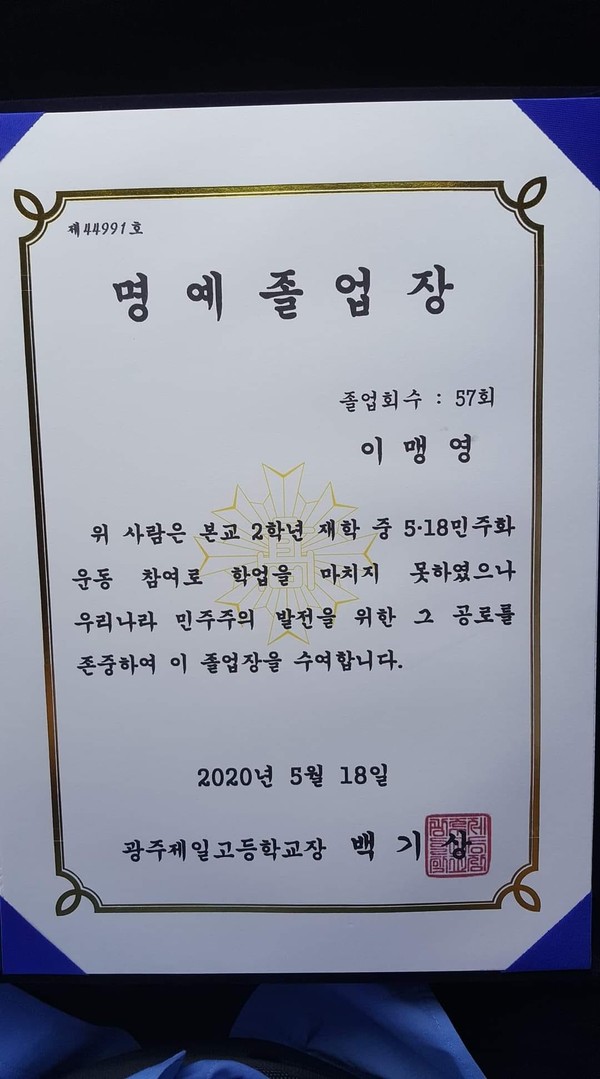 제44991호
명 예 졸 업 장
졸업회수 : 57회
이 맹 영
위 사람은 본교 2학년 재학 중 5·18민주화
운동 참여로 학업을 마치지 못하였으나
우리나라 민주주의 발전을 위한 그 공로를
존중하여 이 졸업장을 수여합니다.
2020년 5월 18일
광주제일고등학교장 백 기 상